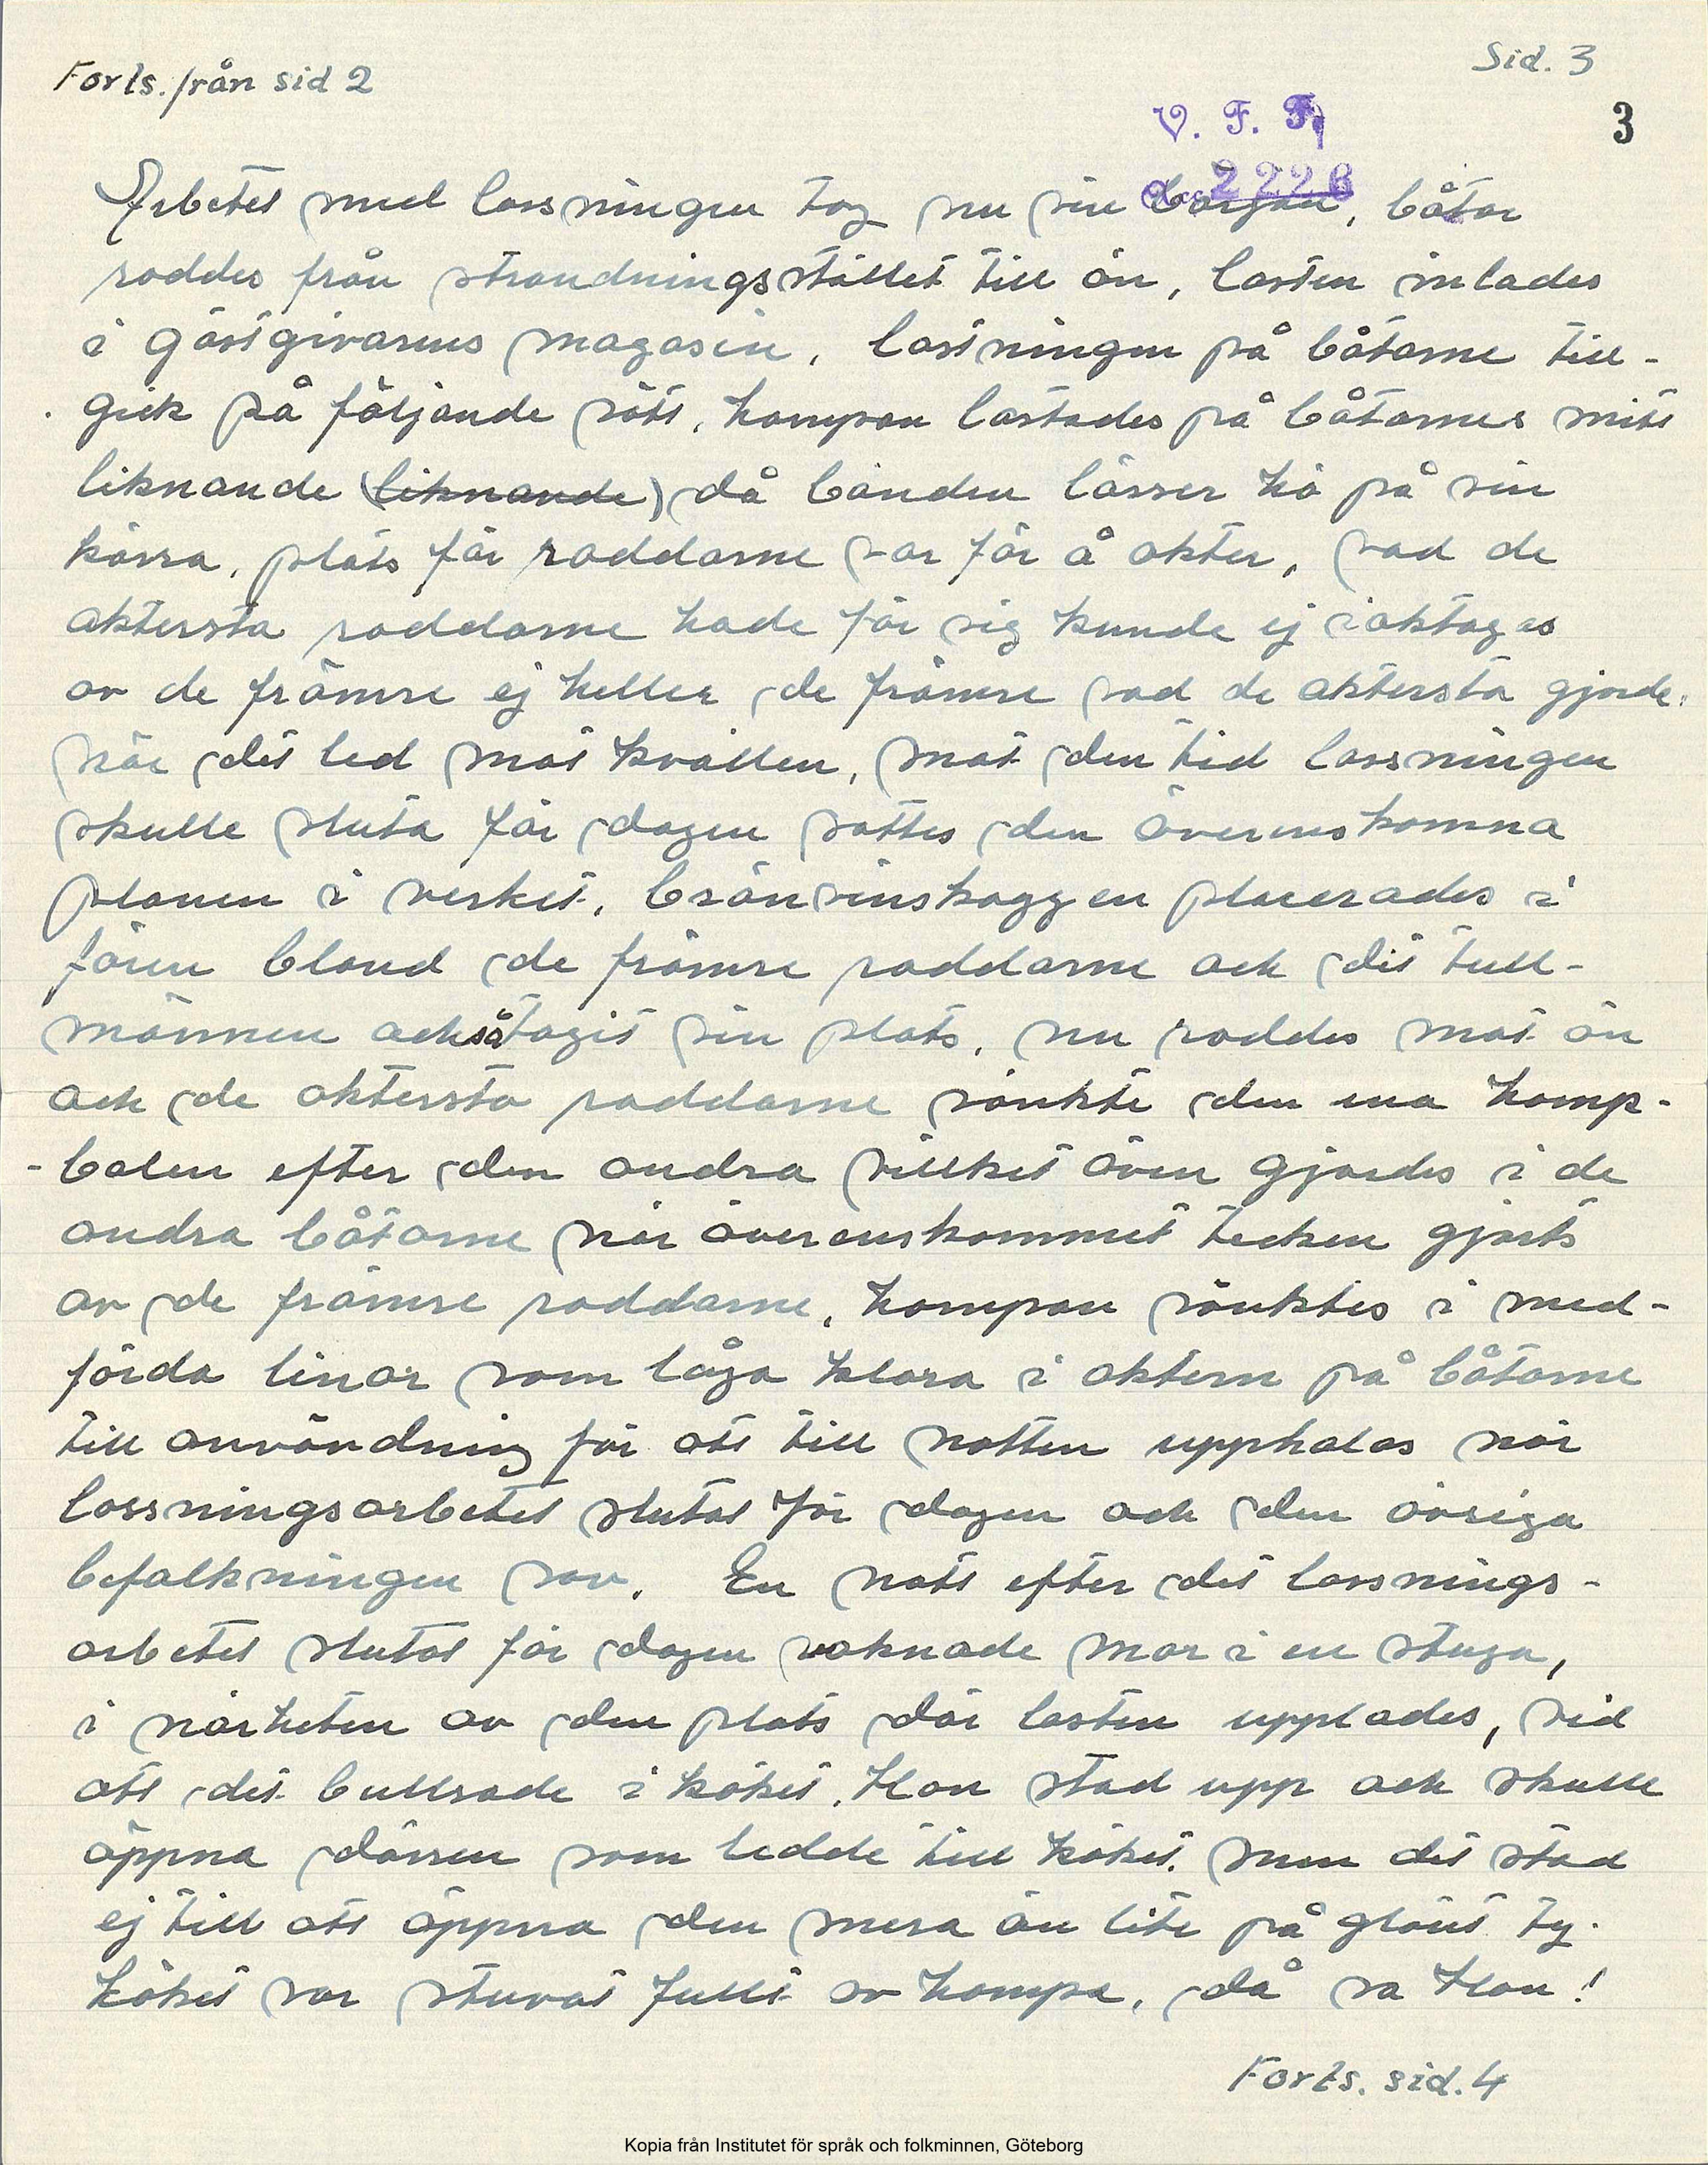 Forts. från sid 2
Sid. 3
V. F. F.
3
2226
Arbetet med lossningen tog nu sin början, båtar
roddes från strandningsstället till ön, lasten inlades
i gästgivarens magasin. lastningen på båtarne till-
gick på följande sätt, hampan lastades på båtarnes mitt
liknande (liknande) då bönden lässer hö på sin
kärra, plats för roddarne var för å akter, vad de
aktersta roddarne hade för sig kunde ej iakttagas
av de främre ej heller de främre vad de aktersta gjorde.
när det led mot kvällen, mot den tid lossningen
skulle sluta för dagen sattes den överenskomna
planen i verket. brännvinskaggen placerades i
fören bland de främre roddarne och dit tull-
männen också tagit sin plats. nu roddes mot ön
och de aktersta roddarne sänkte den ena hamp-
-balen efter den andra villket även gjordes i de
andra båtarne när överenskommet tecken gjorts
av de främre roddarne. hampan sänktes i med-
förda linor som låga klara i aktern på båtarne
till användning för att till natten upphalas när
lossningsarbetet slutat för dagen och den övriga
befolkningen sov. En natt efter det lossnings-
arbetet slutat för dagen vaknade mor i en stuga,
i närheten av den plats där lasten upplades, vid
att det bullrade i köket. Hon stod upp och skulle
öppna dörren som ledde till köket. men det stod
ej till att öppna den mera än lite på glänt ty.
köket var stuvat fullt av hampa, då sa Hon!
Forts. sid. 4
Kopia från Institutet för språk och folkminnen, Göteborg